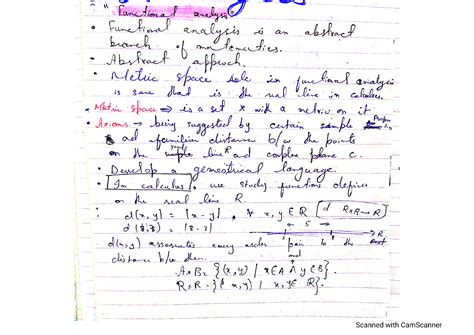 "Functional analysis"
• Functional analysis is an abstract
branch of mathematics.
• Abstract approach.
• Metric space role in functional analysis
is same that is the real line in calculus.
• Metric Space → is a set X with a metric on it
• Axioms → being suggested by certain simple
ad familiar distance b/w the points
on the line R ad complex plane C.
• Develop a geometrical language.
• In calculus, we study function define
on the real line R
d(x,y) = |x-y| , ∀ x,y ∈ R (d R×R→R)
d(8,3) = |8-3|
d(x,y) associates every order pair to the
distance b/w them.
A×B = {(x,y) | x∈A ∧ y∈B}.
R×R = {(x,y) | x,y∈ R}.
Scanned with CamScanner